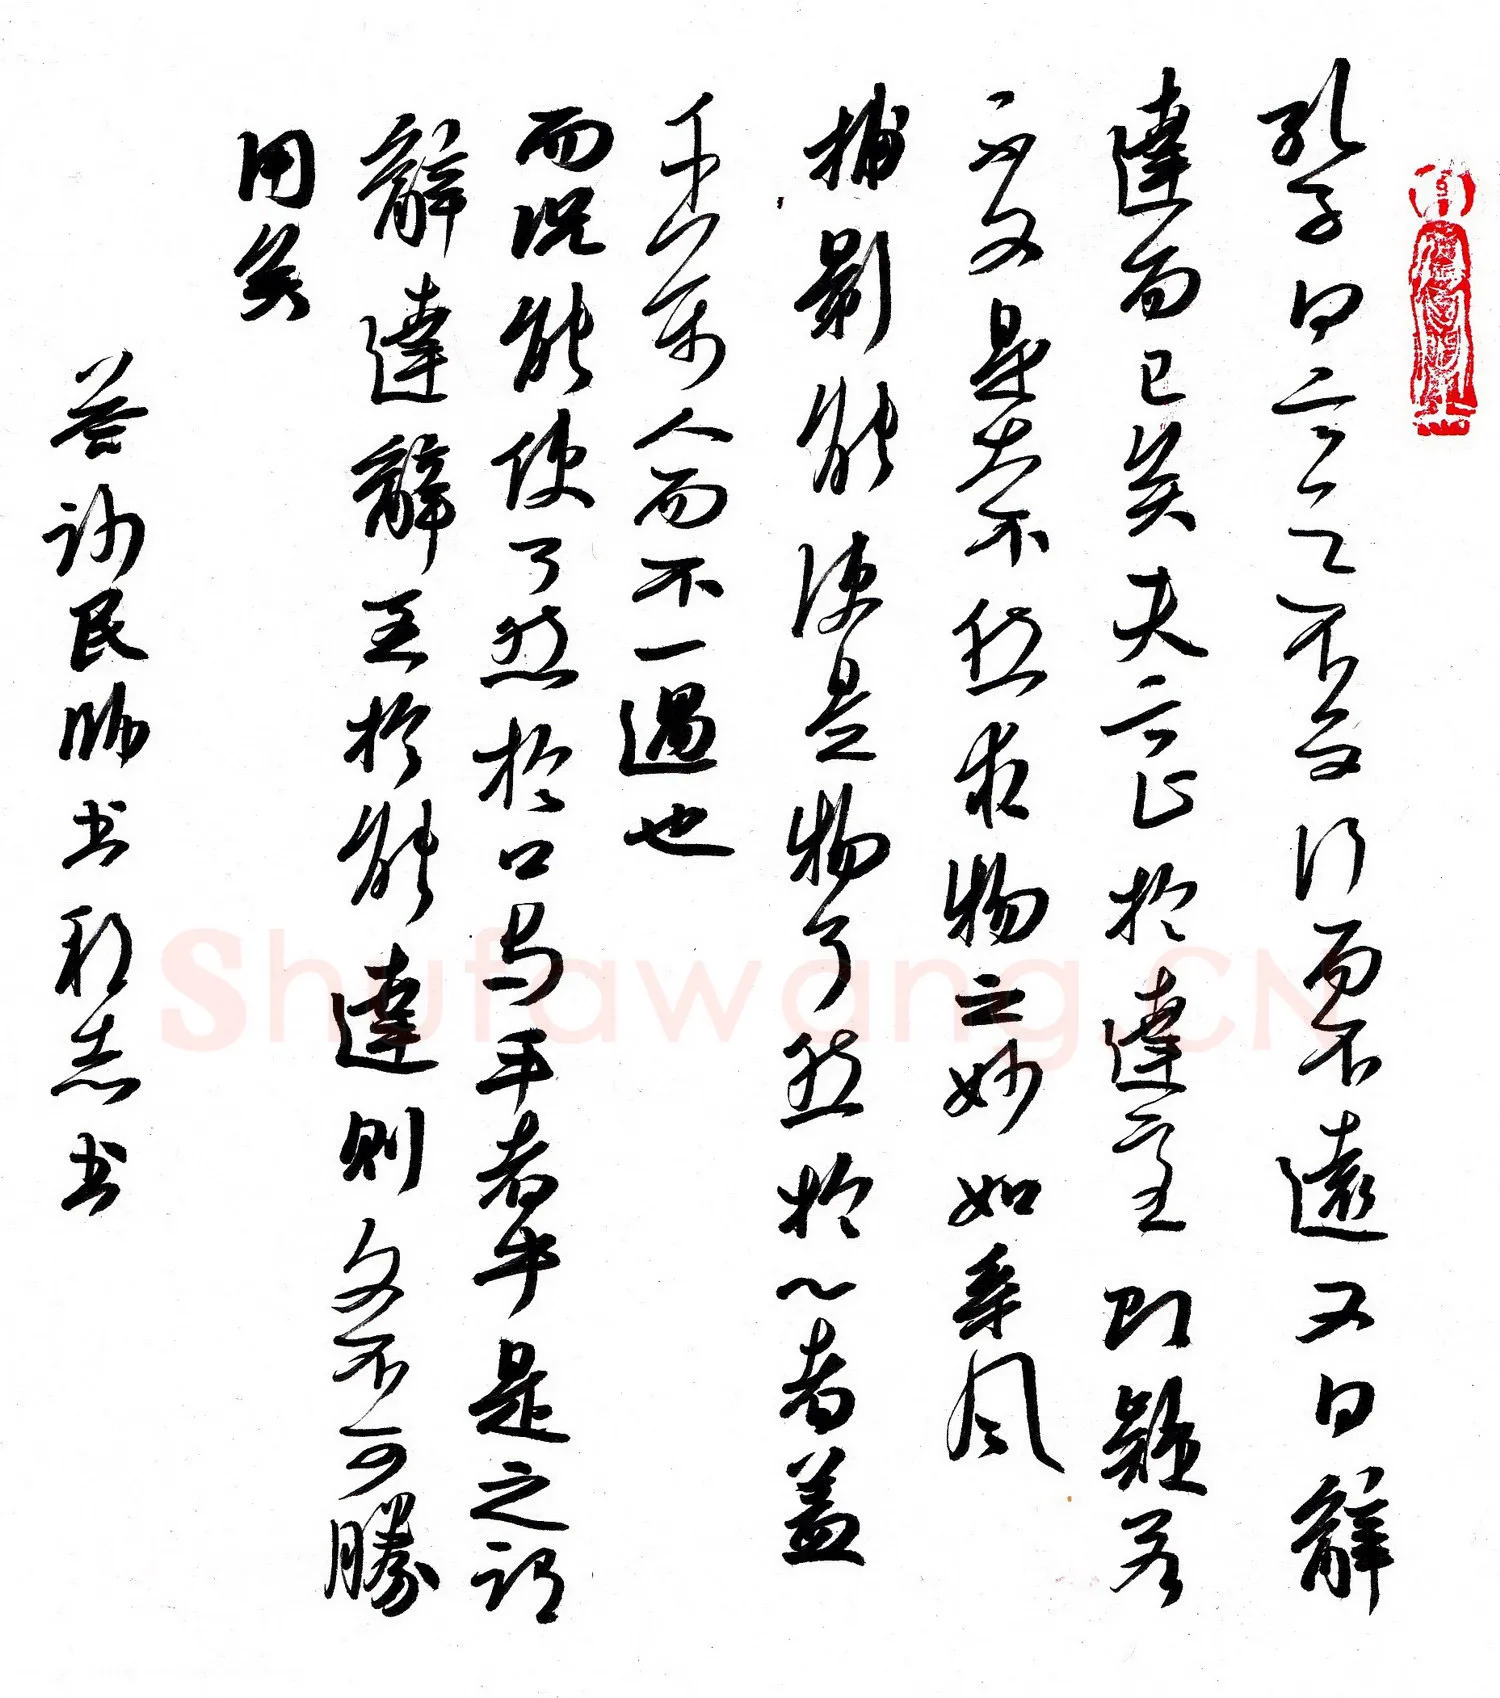 孔子曰言之不文行而不遠又曰辭
達而已矣夫言止於達意即疑若
不文是大不然求物之妙如系風
捕影能使是物了然於心者蓋
千萬人而不一遇也
而況能使了然於口与手者乎是之謂
辭達辭至於能達則文不可勝
用矣
答謝民師书 志书
Shufawang.CN